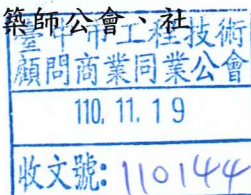 築師公會、社
臺中市工程技術
顧問商業同業公會
110.11.19
收文號:110144